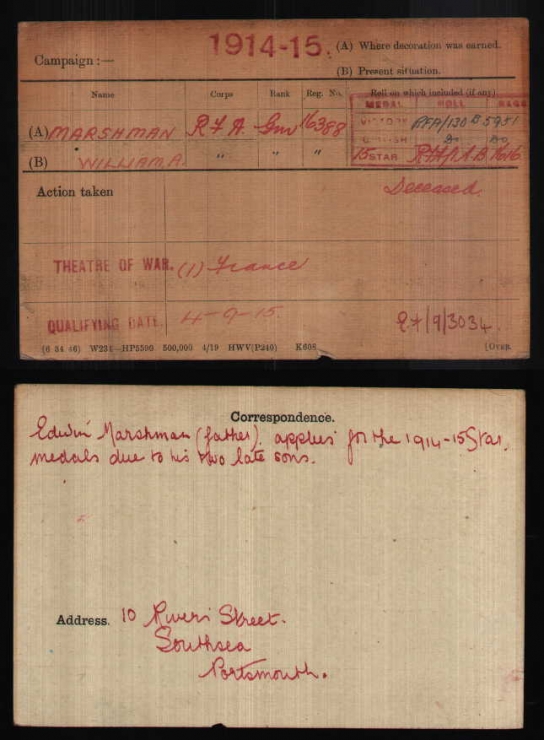 1914-15.
(A) Where decoration was earned.
Campaign :—
(B) Present situation.
Name Corps Rank Reg. No. Roll on which included (if any)
MEDAL ROLL PAGE
(A) MARSHMAN R.F.A. Gnr 16388
VICTORY RFA/130 B 5951
BRITISH Do Do
(B) WILLIAM A. " " "
15 STAR
Action taken
Deceased.
THEATRE OF WAR. (1) France
QUALIFYING DATE 4-9-15.
/9/3034.
(6 34 46) W234—HP5590 500,000 4/19 HWV(P240) K608 [OVER.
Correspondence.
Edwin Marshman (father). applies for the 1914-15 Star,
medals due to his two late sons.
Address. 10 Rivers Street.
Southsea
Portsmouth.